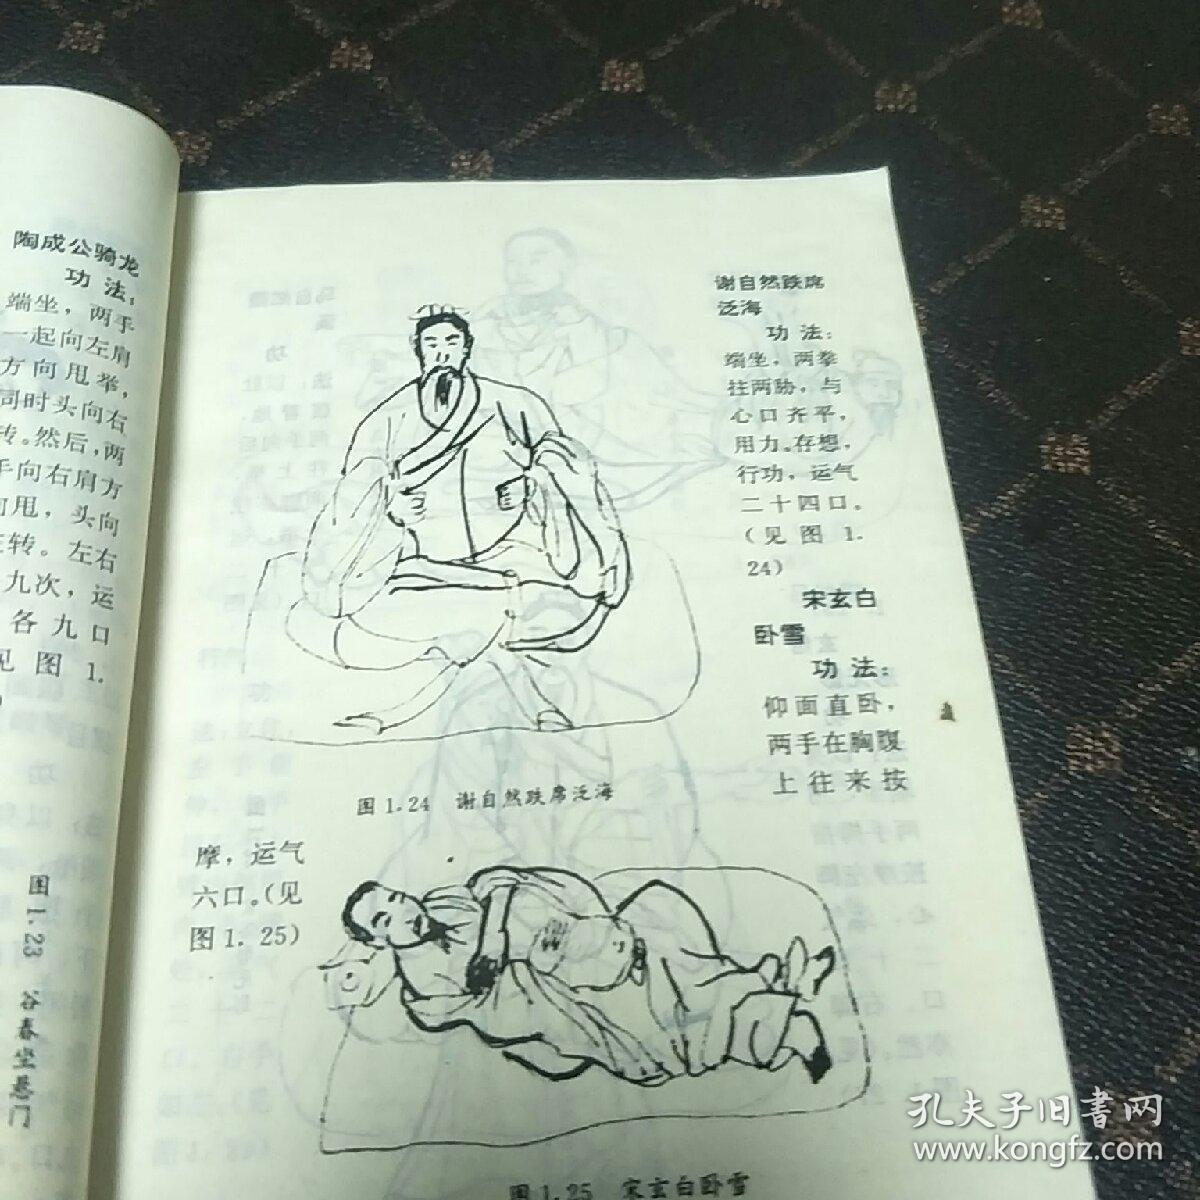 陶成公骑龙
功法:
端坐，两手
一起向左肩
方向甩举，
同时头向右
转。然后，两
手向右肩方
向甩，头向
左转。左右
九次，运
各九口
见图1.
图1.23 谷春坐悬门
谢自然趺席
泛海
功法:
端坐，两拳
拄两胁，与
心口齐平，
用力。存想，
行功，运气
二十四口。
(见图1.
24)
宋玄白
卧雪
功法:
仰面直卧，
两手在胸腹
上往来按
图1.24 谢自然趺席泛海
摩，运气
六口。(见
图1.25)
图1.25 宋玄白卧雪
孔夫子旧书网
www.kongfz.com